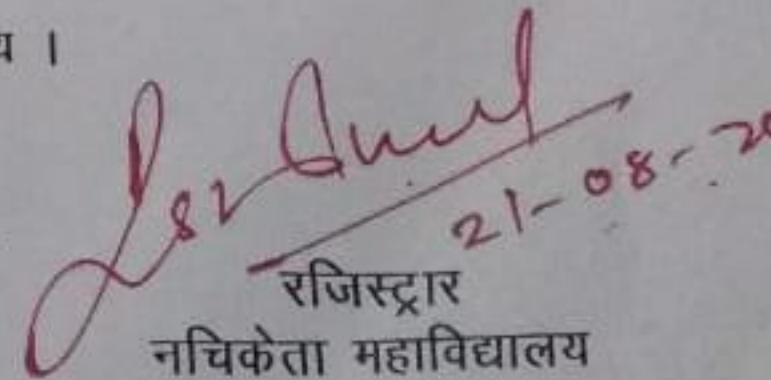 य ।
21-08-20
रजिस्ट्रार
नचिकेता महाविद्यालय